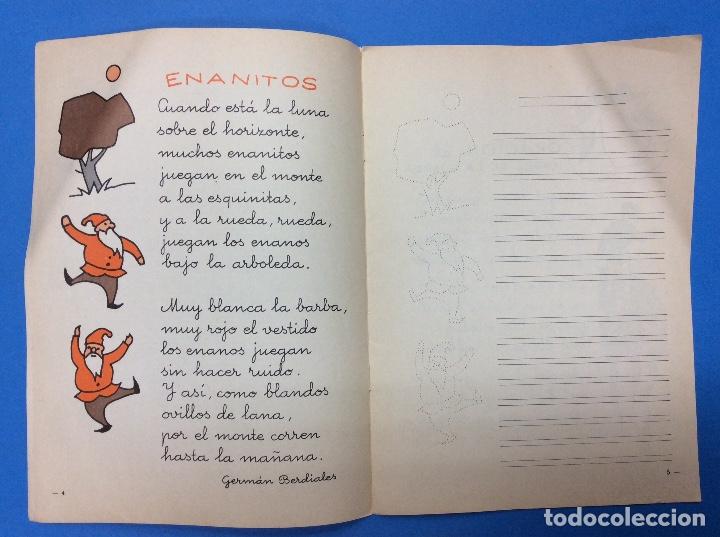 ENANITOS
Cuando está la luna
sobre el horizonte,
muchos enanitos
juegan en el monte
a las esquinitas,
y a la rueda, rueda,
juegan los enanos
bajo la arboleda.
Muy blanca la barba,
muy rojo el vestido
los enanos juegan
sin hacer ruido.
Y así, como blandos
ovillos de lana,
por el monte corren
hasta la mañana.
Germán Berdiales
— 4
5 —
todocoleccion